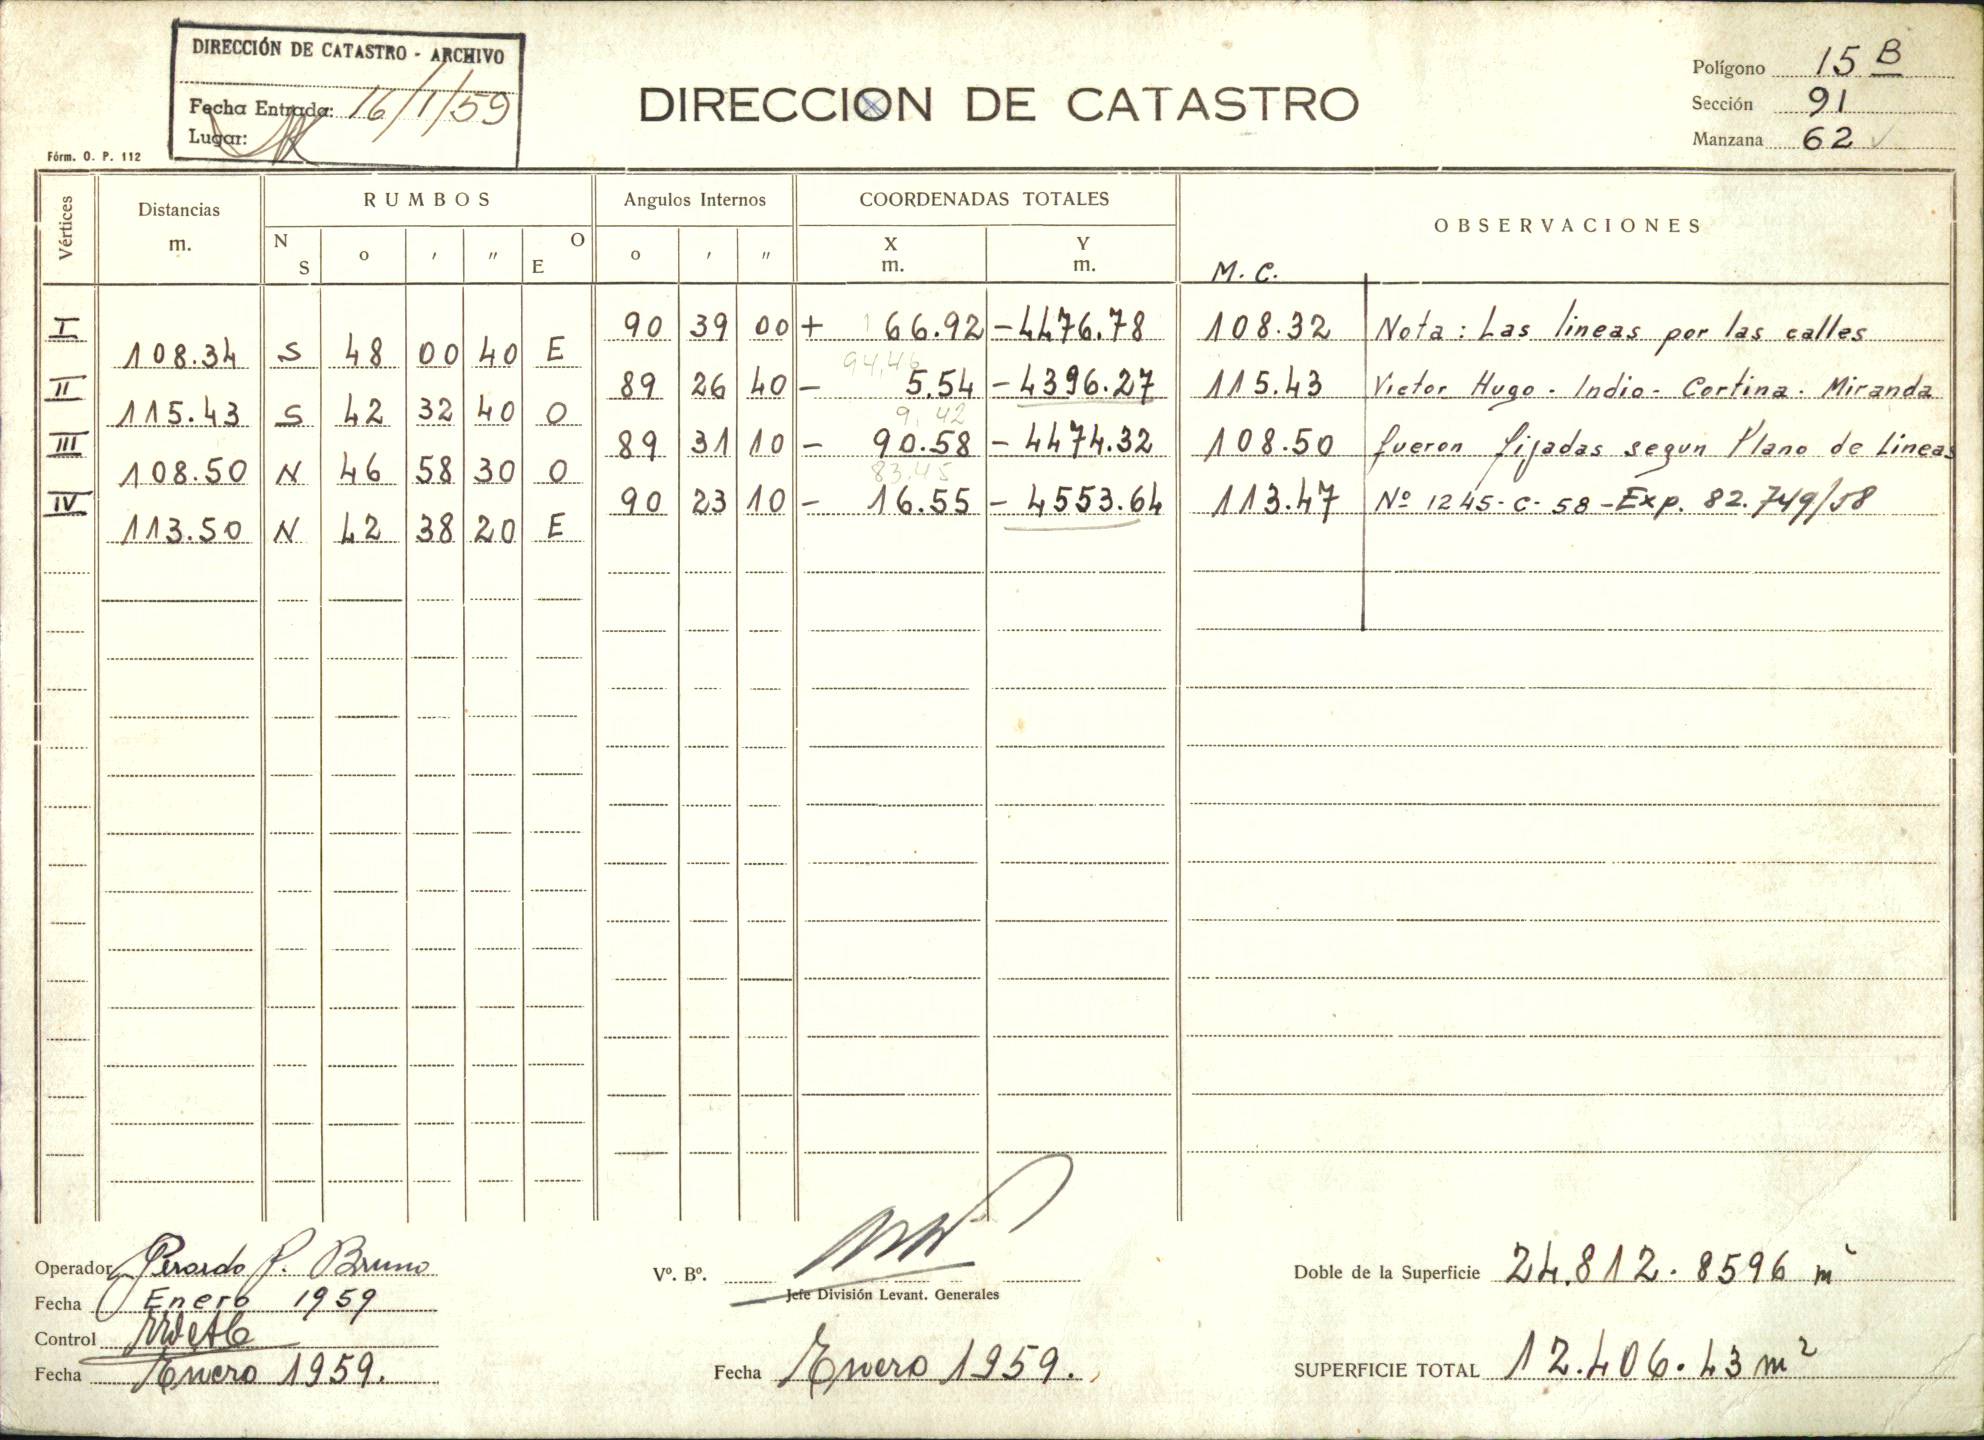 DIRECCIÓN DE CATASTRO - ARCHIVO
Fecha Entrada: 16/1/59
Lugar:
Fórm. O. P. 112
DIRECCION DE CATASTRO
Polígono 15 B
Sección 91
Manzana 62
Vértices Distancias m. RUMBOS Angulos Internos COORDENADAS TOTALES OBSERVACIONES
N S ° ' " O E ° ' " X m. Y m. M. C.
I 90 39 00 + 66.92 -4476.78 108.32 Nota: Las lineas por las calles
108.34 S 48 00 40 E
94,46
II 89 26 40 - 5.54 -4396.27 115.43 Victor Hugo - Indio - Cortina - Miranda
115.43 S 42 32 40 O
9,42
III 89 31 10 - 90.58 - 4474.32 108.50 fueron fijadas segun Plano de Lineas
108.50 N 46 58 30 O
83.45
IV 90 23 10 - 16.55 - 4553.64 113.47 Nº 1245-C-58-Exp. 82.749/58
113.50 N 42 38 20 E
Operador P. Bruno
Fecha Enero 1959
Control
Fecha Enero 1959.
Vº. Bº.
Jefe División Levant. Generales
Fecha Enero 1959.
Doble de la Superficie 24.812.8596 m²
SUPERFICIE TOTAL 12.406.43 m²